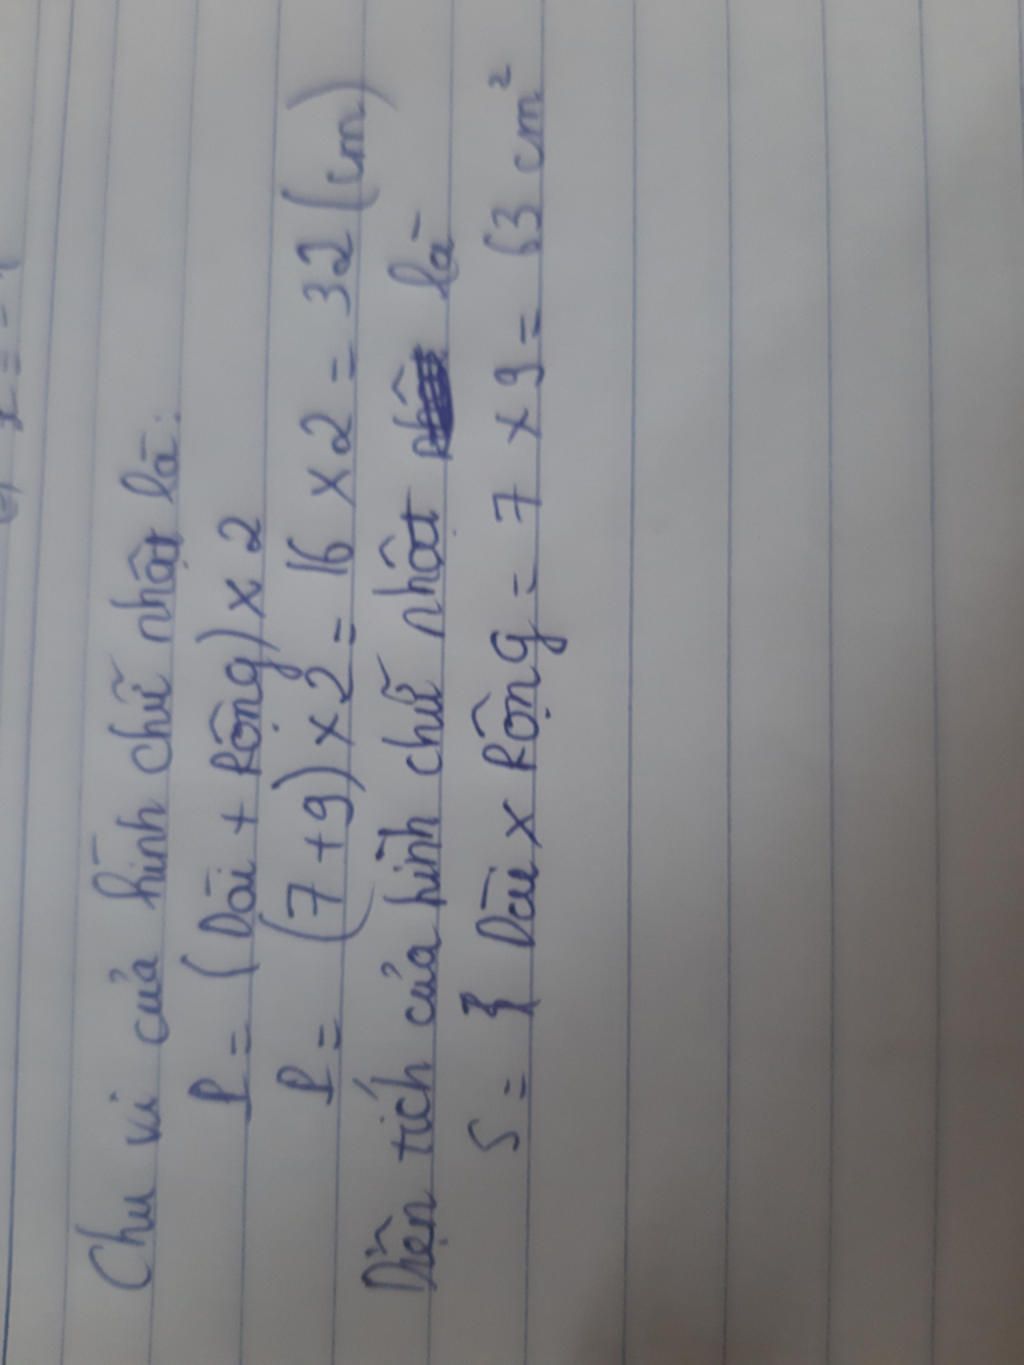 Chu vi của hình chữ nhật là:
P = (Dài + Rộng) x 2
P = (7 + 9) x 2 = 16 x 2 = 32 (cm)
Diện tích của hình chữ nhật là
S = Dài x Rộng = 7 x 9 = 63 cm²